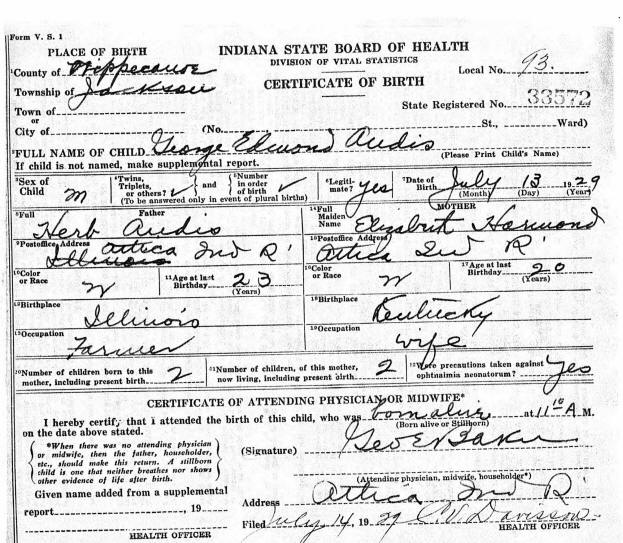 Form V. S. 1
PLACE OF BIRTH
INDIANA STATE BOARD OF HEALTH
DIVISION OF VITAL STATISTICS
CERTIFICATE OF BIRTH
Local No. 93.
State Registered No. 33572
1County of Tippecanoe
Township of Jackson
Town of
or
City of (No. St., Ward)
2FULL NAME OF CHILD George Edmond Audis
(Please Print Child's Name)
If child is not named, make supplemental report.
3Sex of Child m
4Twins, Triplets, or others? ✓ and 5Number in order of birth ✓
(To be answered only in event of plural births)
6Legitimate? yes
7Date of Birth July 13 1929
(Month) (Day) (Year)
8Full Father
Herb Audis
14Full Maiden Name MOTHER
Elizabeth Harmond
9Postoffice Address Attica Ind R'
Illinois
15Postoffice Address
Attica Ind R'
10Color or Race W
11Age at last Birthday 23
(Years)
16Color or Race W
17Age at last Birthday 20
(Years)
12Birthplace
Illinois
18Birthplace
Kentucky
13Occupation
Farmer
19Occupation
wife
20Number of children born to this mother, including present birth 2
21Number of children, of this mother, now living, including present birth 2
22Were precautions taken against ophtnaimia neonatorum? yes
CERTIFICATE OF ATTENDING PHYSICIAN OR MIDWIFE*
I hereby certify that I attended the birth of this child, who was born alive at 11 10 A M.
(Born alive or Stillborn)
on the date above stated.
*When there was no attending physician
or midwife, then the father, householder,
etc., should make this return. A stillborn
child is one that neither breathes nor shows
other evidence of life after birth.
(Signature) Geo E Baker
(Attending physician, midwife, householder*)
Given name added from a supplemental
report , 19
HEALTH OFFICER
Address Attica Ind R'
Filed July 14, 1929 C V Davisson
HEALTH OFFICER